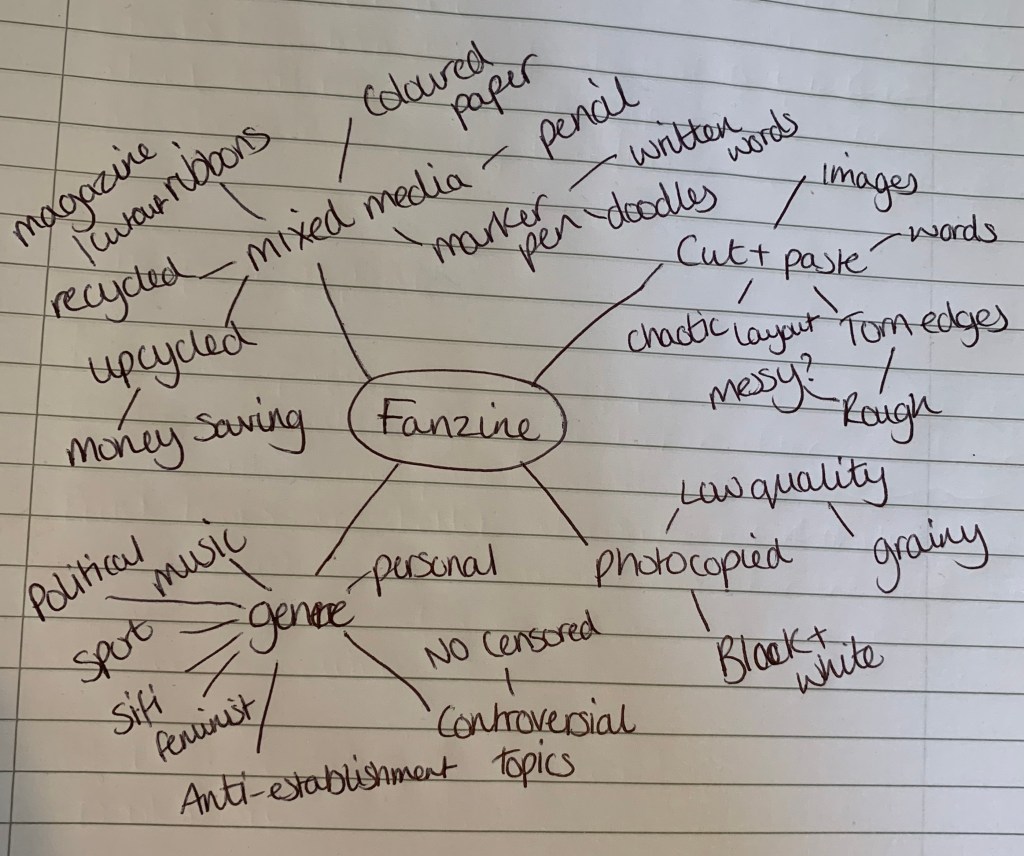 Fanzine
mixed media
coloured
paper
pencil
marker
pen
written
words
doodles
ribbons
magazine
/cutout
recycled
upcycled
money saving
Cut + paste
images
words
Torn edges
Rough
messy?
chaotic layout
photocopied
Low quality
grainy
Black +
white
genre
personal
music
Political
sport
sifi
feminist
Anti-establishment
Controversial
topics
NO censored